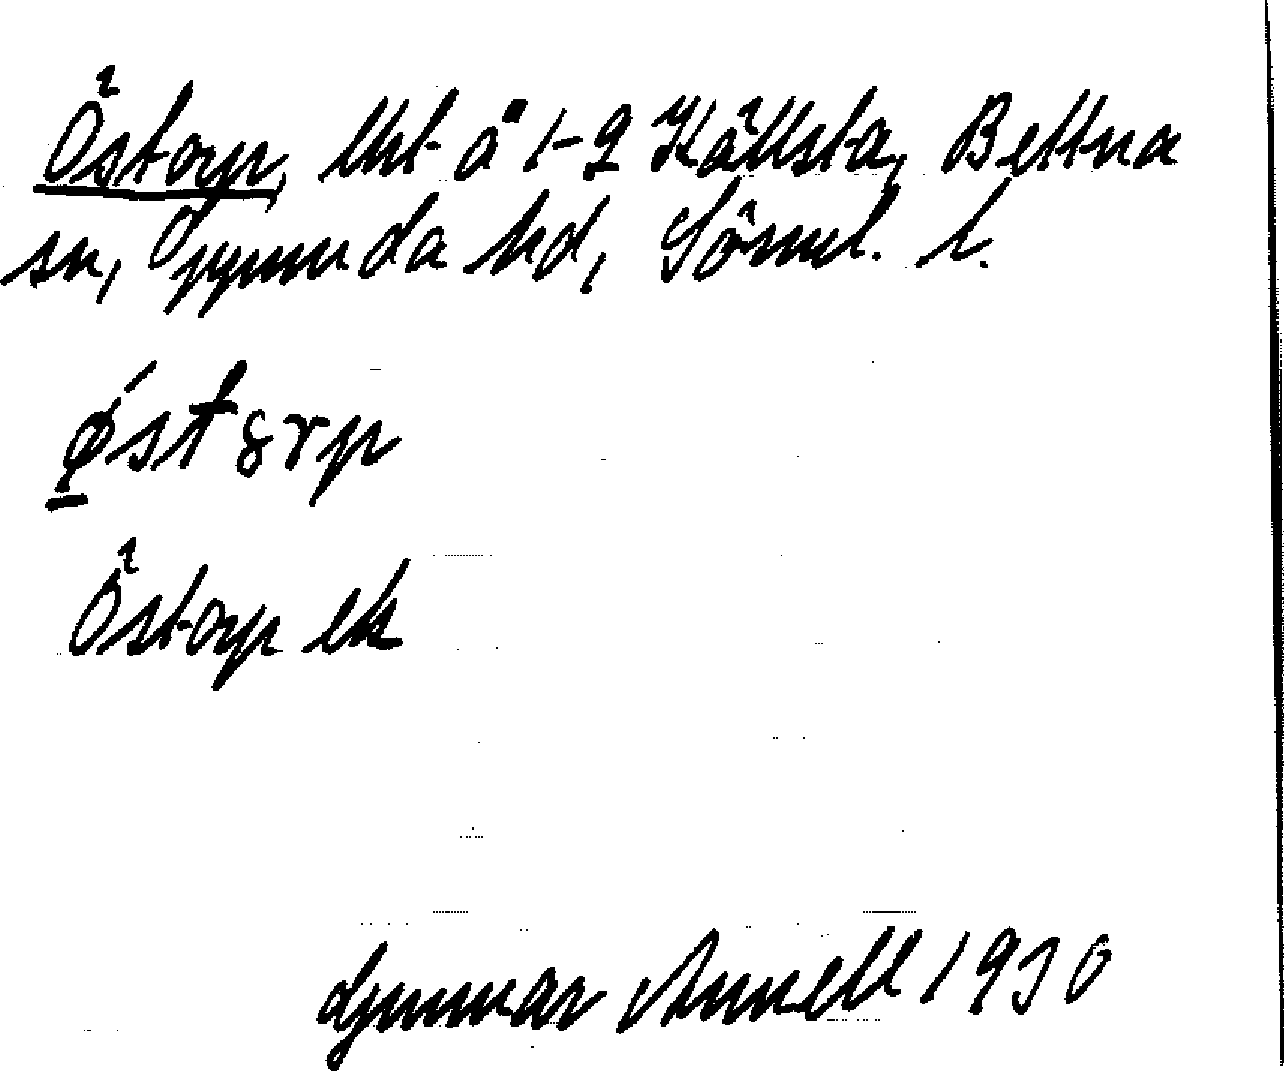 Östorp, lht å 1-2 Källsta, Bettna
sn, Oppunda hd, Söml. l.
ǿstȣrp
Östorp ek
Gunnar Annell 1930